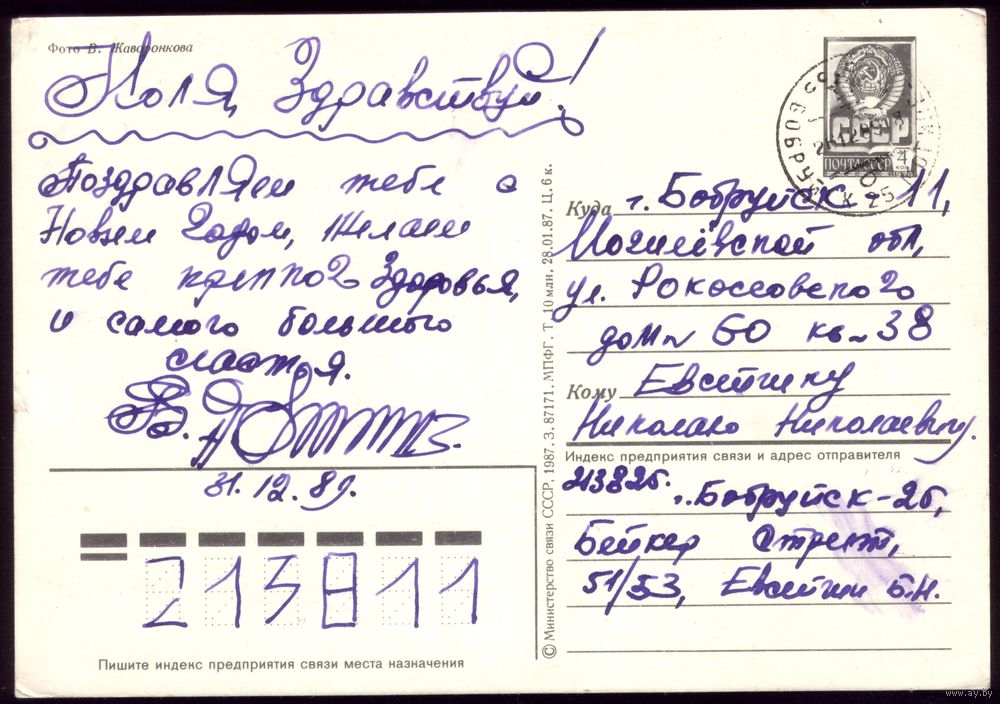 Фото В. Жаворонкова
Коля, Здравствуй!
Поздравляем тебе с
Новым Годом, Желаем
тебе крепкого Здоровья,
и самого большого
счастья.
31.12.89.
213811
Пишите индекс предприятия связи места назначения
© Министерство связи СССР, 1987. З. 87171. МПФГ. Т. 10 млн. 28.01.87. Ц. 6 к.
СССР
ПОЧТА СССР 4 коп
1976
Куда г. Бобруйск 11,
Могилёвской обл,
ул. Рокоссовского
дом № 60 кв № 38
Кому Евситину
Николаю Николаевичу.
Индекс предприятия связи и адрес отправителя
213826.
г. Бобруйск-26,
Бейкер Стреет,
51/53, Евситин Б.Н.
www.ay.by